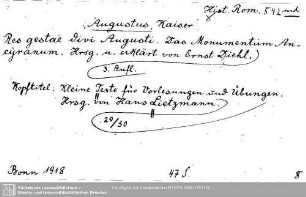 Hist. Rom. 542 und
Augustus, Kaiser
Res gestae divi Augusti. Das Monumentum An-
cyranum. Hrsg. u. erklärt von Ernst Diehl.
3. Aufl.
Kopftitel: Kleine Texte für Vorlesungen und Übungen.
Hrsg. von Hans Lietzmann.
29/30
Bonn 1918 47 S. 8